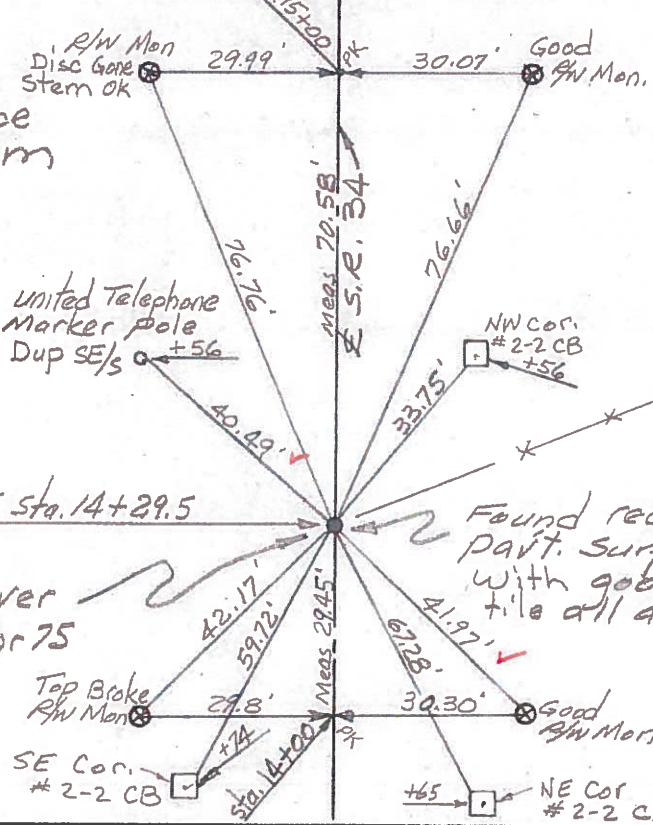 15+00
R/W Mon
Disc Gone
Stem Ok
29.99'
PK
30.07'
Good
R/W Mon.
ce
m
76.76'
Meas 70.58'
℄ S.R. 34
76.66'
United Telephone
Marker Pole
Dup SE/s
+56
NW Cor.
#2-2 CB
+56
40.49'
33.75'
Sta. 14+29.5
Found
Pav't. Sur
with
tile all
ver
or 75
42.17'
59.72'
Meas 29.45'
67.28'
41.97'
Top Broke
R/W Mon
29.8'
PK
30.30'
Good
R/W Mon
+74
Sta. 14+00
SE Cor.
#2-2 CB
+65
NE Cor
#2-2 C